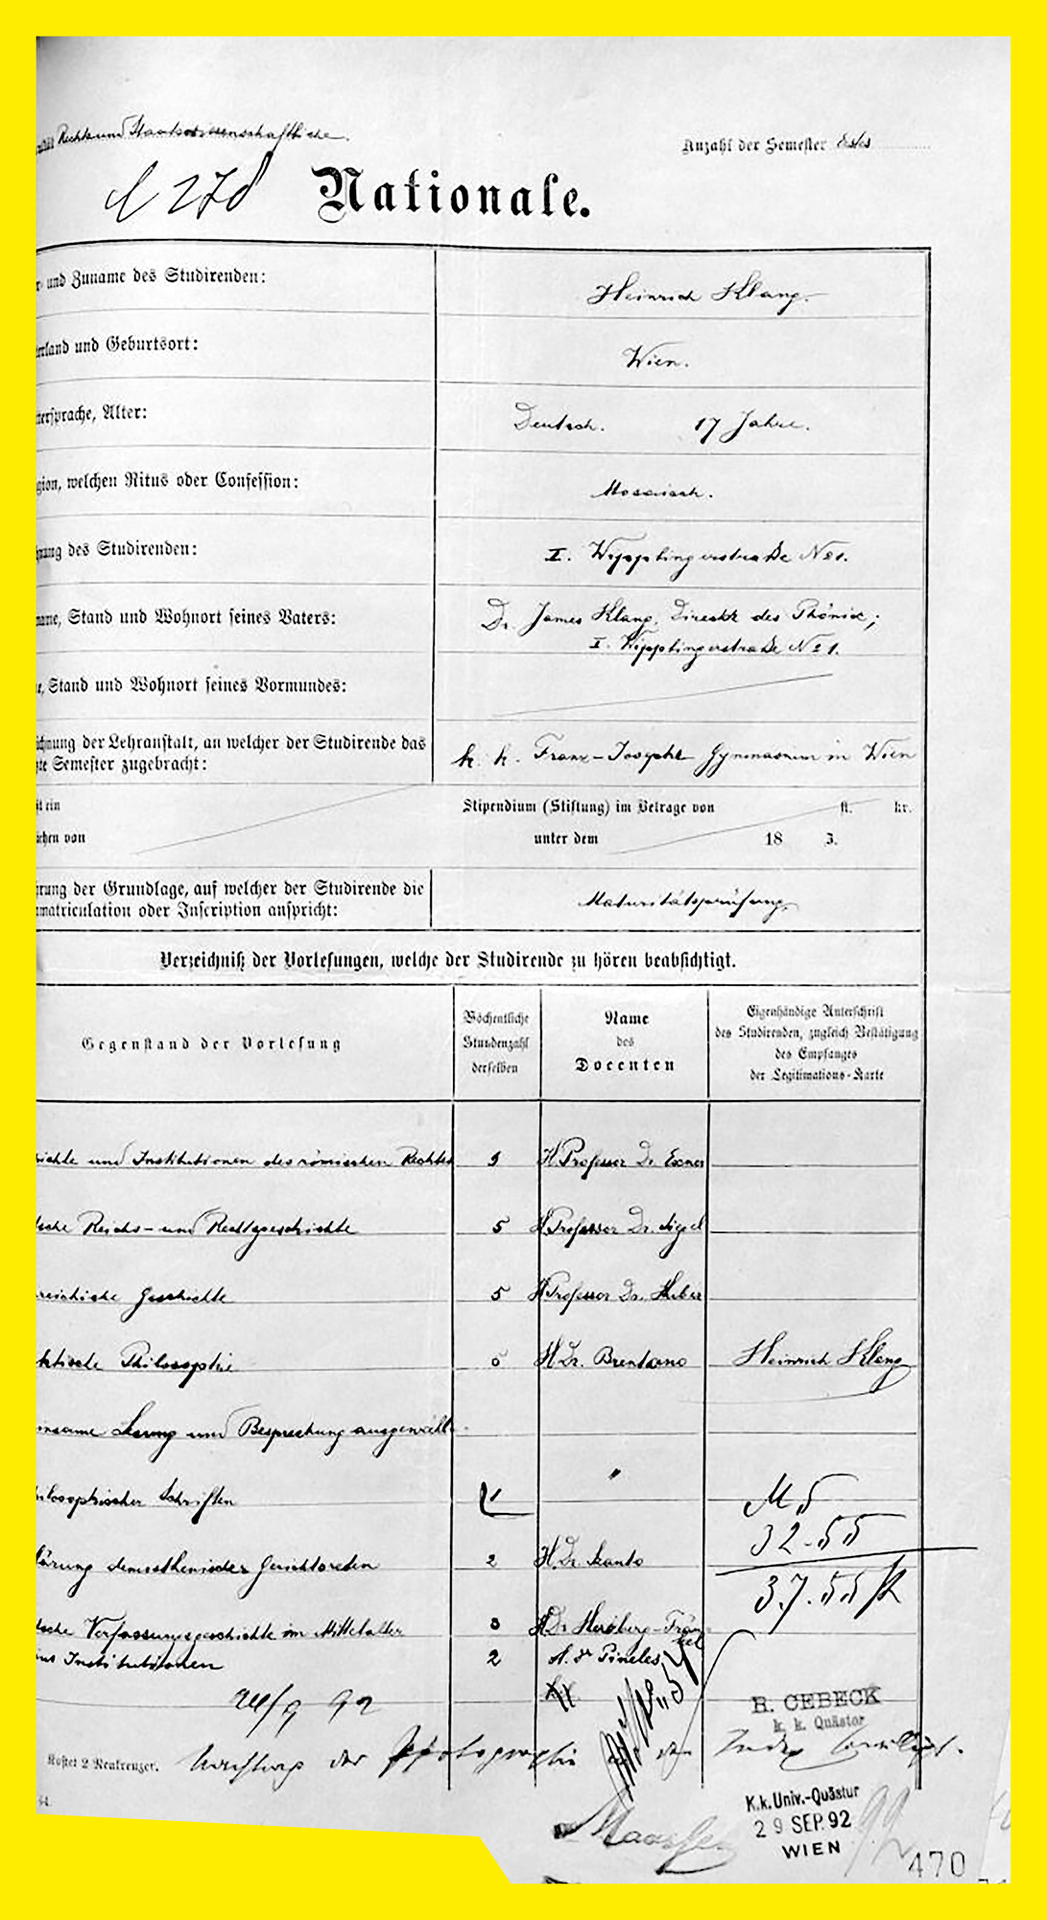 Rechts und Staatswissenschaftliche.
Anzahl der Semester Erstes
278 Nationale.
und Zuname des Studirenden:
Heinrich Klang.
land und Geburtsort:
Wien.
tersprache, Alter:
Deutsch. 17 Jahre.
gion, welchen Ritus oder Confession:
Mosaisch.
nung des Studirenden:
I. Wipplingerstraße No 1.
name, Stand und Wohnort seines Vaters:
Dr. James Klang, Direktor des Phönix;
I. Wipplingerstraße No 1.
e, Stand und Wohnort seines Vormundes:
ichnung der Lehranstalt, an welcher der Studirende das
te Semester zugebracht:
k. k. Franz-Josephs Gymnasium in Wien
t ein
Stipendium (Stiftung) im Betrage von fl. kr.
chen von
unter dem 18 Z.
rung der Grundlage, auf welcher der Studirende die
matriculation oder Inscription anspricht:
Maturitätsprüfung.
Verzeichniß der Vorlesungen, welche der Studirende zu hören beabsichtigt.
Gegenstand der Vorlesung
Wöchentliche
Stundenzahl
derselben
Name
des
Docenten
Eigenhändige Unterschrift
des Studirenden, zugleich Bestätigung
des Empfanges
der Legitimations-Karte
ichte und Institutionen des römischen Rechtes H Professor Dr. Exner
sche Reichs- und Rechtsgeschichte 5 H Professor Dr. Sigel
reichische Geschichte 5 H Professor Dr. Huber
ktische Philosophie 5 H Dr. Brentano Heinrich Klang
insame Lesung und Besprechung ausgewählt
hilosophischer Schriften 1 "
M 5
32.55
lärung demosthenischer Gerichtsreden 2 H Dr.
37.55
sche Verfassungsgeschichte im Mittelalter 3 H Dr. Herzberg-Fränkel
Institutionen 2 H. Dr Pineles
24/9 92
R. CEBECK
k. k. Quästor
Kostet 2 Neukreuzer.
der Photographie
K.k. Univ.-Quästur
29 SEP. 92
WIEN
Maassen
470